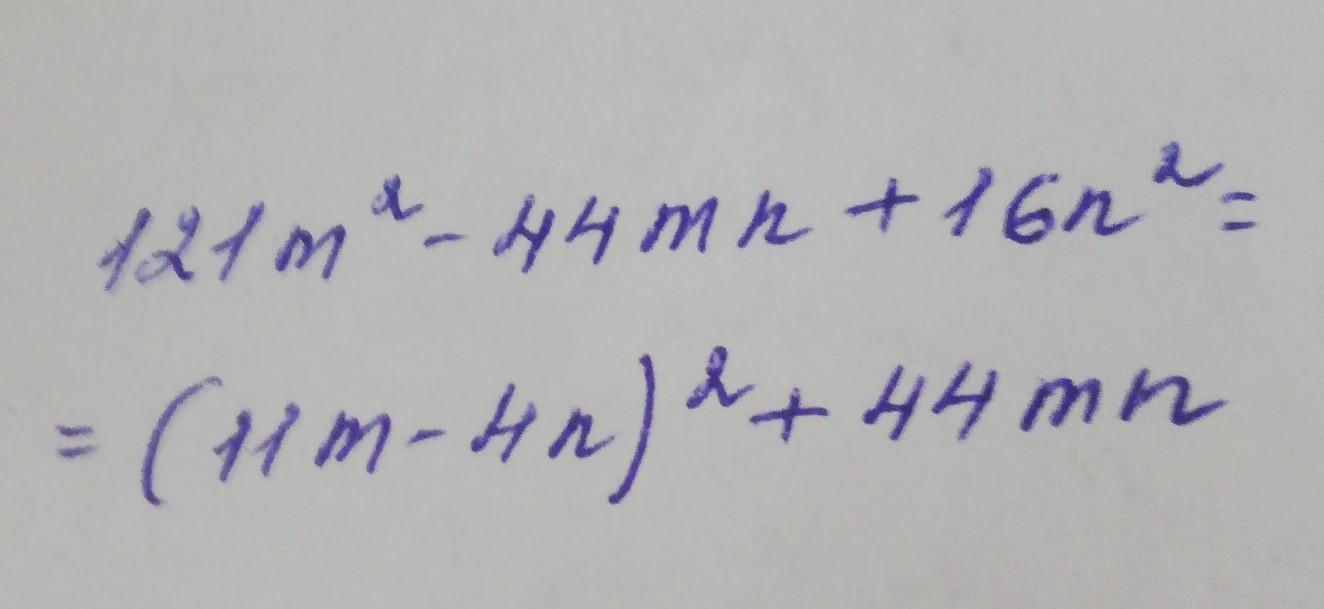 121m² - 44mn + 16n² =
= (11m - 4n)² + 44mn